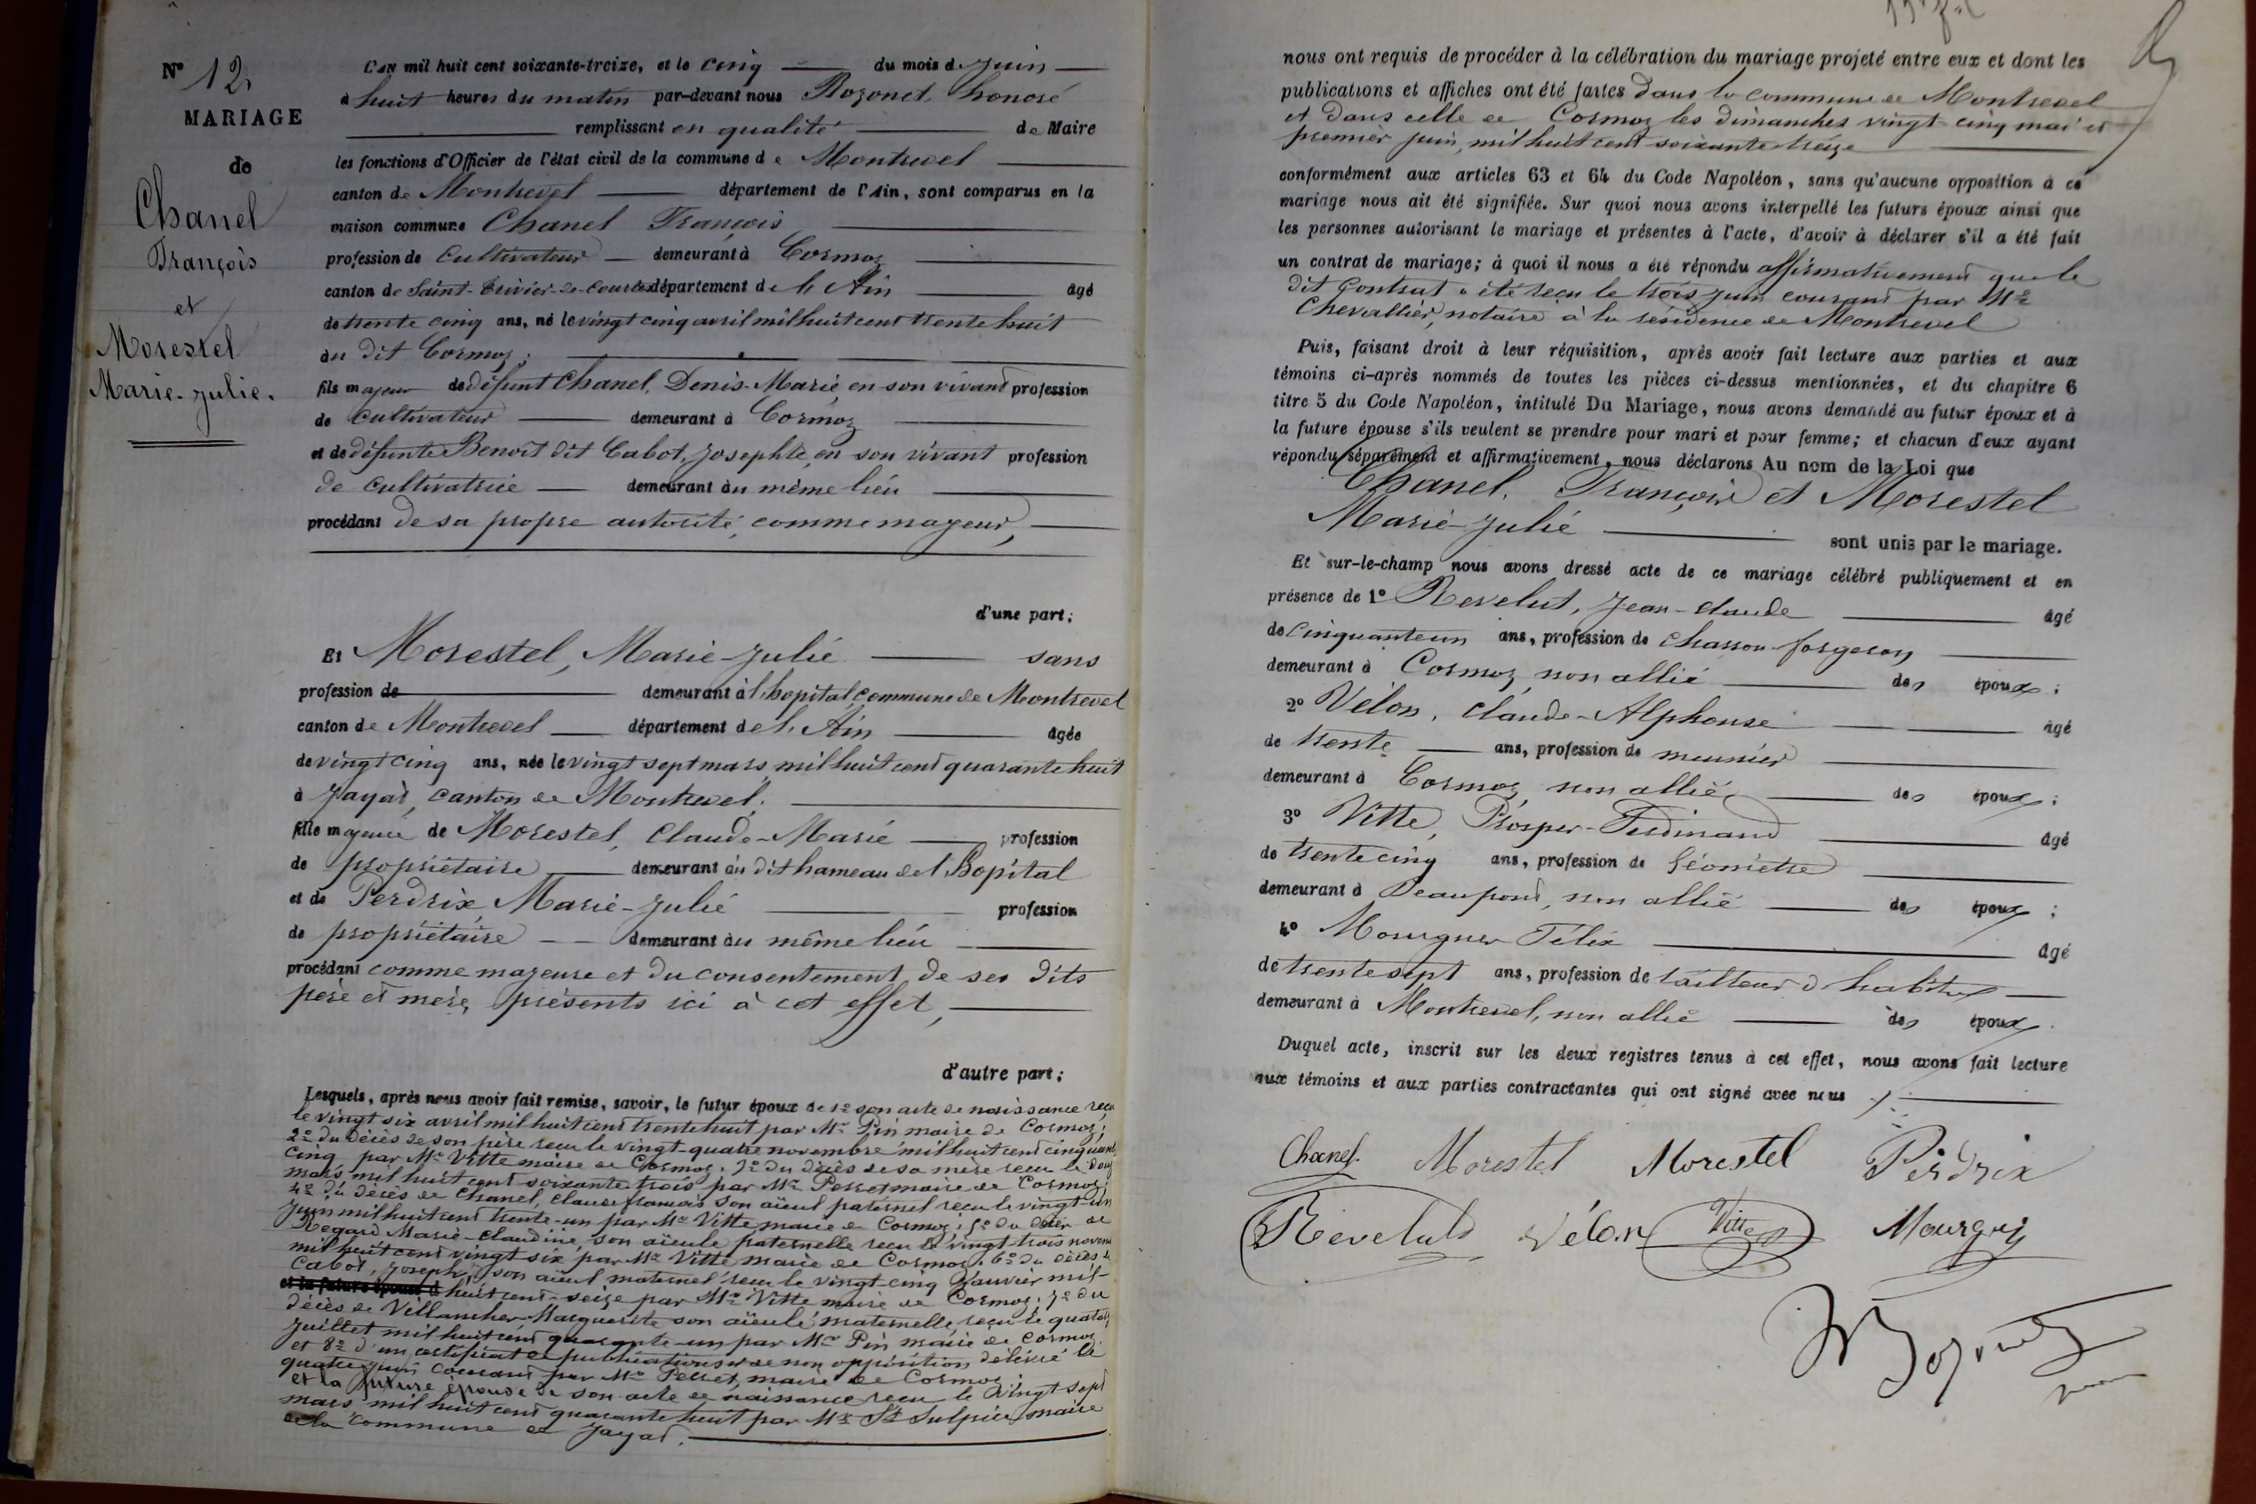 Nº 12
MARIAGE
de
Chanel
François
et
Morestel
Marie-Julie.
L'AN mil huit cent soixante-treize, et le cinq du mois de juin
à huit heures du matin par-devant nous Bozonet honoré
remplissant en qualité de Maire
les fonctions d'Officier de l'état civil de la commune de Montrevel
canton de Montrevel département de l'Ain, sont comparus en la
maison commune Chanel François
profession de cultivateur demeurant à Cormoz
canton de Saint-Trivier-de-Courtes département de l'Ain âgé
de trente cinq ans, né le vingt cinq avril mil huit cent trente huit
au dit Cormoz;
fils majeur de défunt Chanel, Denis-Marie, en son vivant profession
de cultivateur demeurant à Cormoz
et de défunte Benoît dit Cabot, Josephte, en son vivant profession
de cultivatrice demeurant au même lieu
procédant de sa propre autorité, comme majeur,
d'une part;
Et Morestel, Marie-Julie sans
profession de demeurant à l'hopital, commune de Montrevel
canton de Montrevel département de l'Ain âgée
de vingt cinq ans, née le vingt sept mars mil huit cent quarante huit
à Jayat, canton de Montrevel.
fille majeure de Morestel, Claude-Marie profession
de propriétaire demeurant au dit hameau de l'Hopital
et de Perdrix, Marie-Julie profession
de propriétaire demeurant au même lieu
procédant comme majeure et du consentement de ses dits
père et mère, présents ici à cet effet,
d'autre part;
Lesquels, après nous avoir fait remise, savoir, le futur époux de 1º son acte de naissance reçu
le vingt six avril mil huit cent trente huit par Mr Pin maire de Cormoz;
2º du décès de son père reçu le vingt-quatre novembre mil huit cent cinquante
cinq par Mr Vitte maire de Cormoz; 3º du décès de sa mère reçu le
mars mil huit cent soixante trois par Mr Perret maire de Cormoz;
4º du décès de Chanel, claude françois son aïeul paternel reçu le vingt-un
juin mil huit cent trente-un par Mr Vitte maire de Cormoz; 5º du décès de
Regard Marie-Claudine, son aïeule paternelle reçu le vingt-trois novem
mil huit cent vingt six, par Mr Vitte maire de Cormoz; 6º du décès de
Cabot, Joseph, son aïeul maternel reçu le vingt-cinq Janvier mil-
et la future épouse d huit cent-seize par Mr Vitte maire de Cormoz; 7º du
décès de Villancher Marguerite son aïeule maternelle, reçu le
juillet mil huit cent quarante-un par Mr Pin maire de Cormoz
et 8º d'un certificat de publications et de non opposition délivré le
quatre juin courant par Mr Perret, maire de Cormoz;
et la future épouse de son acte de naissance reçu le vingt sept
mars mil huit cent quarante huit par Mr St Sulpice, maire
de la commune de Jayat.
nous ont requis de procéder à la célébration du mariage projeté entre eux et dont les
publications et affiches ont été faites dans la commune de Montrevel
et dans celle de Cormoz les dimanches vingt-cinq mai et
premier juin, mil huit cent soixante treize
conformément aux articles 63 et 64 du Code Napoléon, sans qu'aucune opposition à ce
mariage nous ait été signifiée. Sur quoi nous avons interpellé les futurs époux ainsi que
les personnes autorisant le mariage et présentes à l'acte, d'avoir à déclarer s'il a été fait
un contrat de mariage; à quoi il nous a été répondu affirmativement que le
dit Contrat a été reçu le trois juin courant par Me
Chevallier, notaire à la résidence de Montrevel
Puis, faisant droit à leur réquisition, après avoir fait lecture aux parties et aux
témoins ci-après nommés de toutes les pièces ci-dessus mentionnées, et du chapitre 6
titre 5 du Code Napoléon, intitulé Du Mariage, nous avons demandé au futur époux et à
la future épouse s'ils veulent se prendre pour mari et pour femme; et chacun d'eux ayant
répondu séparément et affirmativement, nous déclarons Au nom de la Loi que
Chanel, François et Morestel
Marie-Julie
sont unis par le mariage.
Et sur-le-champ nous avons dressé acte de ce mariage célébré publiquement et en
présence de 1º Revelut, Jean-Claude âgé
de cinquante un ans, profession de charron-forgeron
demeurant à Cormoz, non allié des époux;
2º Vélon, Claude-Alphonse âgé
de trente ans, profession de meunier
demeurant à Cormoz, non allié des époux;
3º Vitte, Prosper-Ferdinand âgé
de trente cinq ans, profession de Géomètre
demeurant à Beaupont, non allié des époux;
4º Mourgues Félix âgé
de trente sept ans, profession de tailleur d'habits
demeurant à Montrevel, non allié des époux.
Duquel acte, inscrit sur les deux registres tenus à cet effet, nous avons fait lecture
aux témoins et aux parties contractantes qui ont signé avec nous
Chanel Morestel Morestel Perdrix
Revelut Vélon Vitte
Bozonet